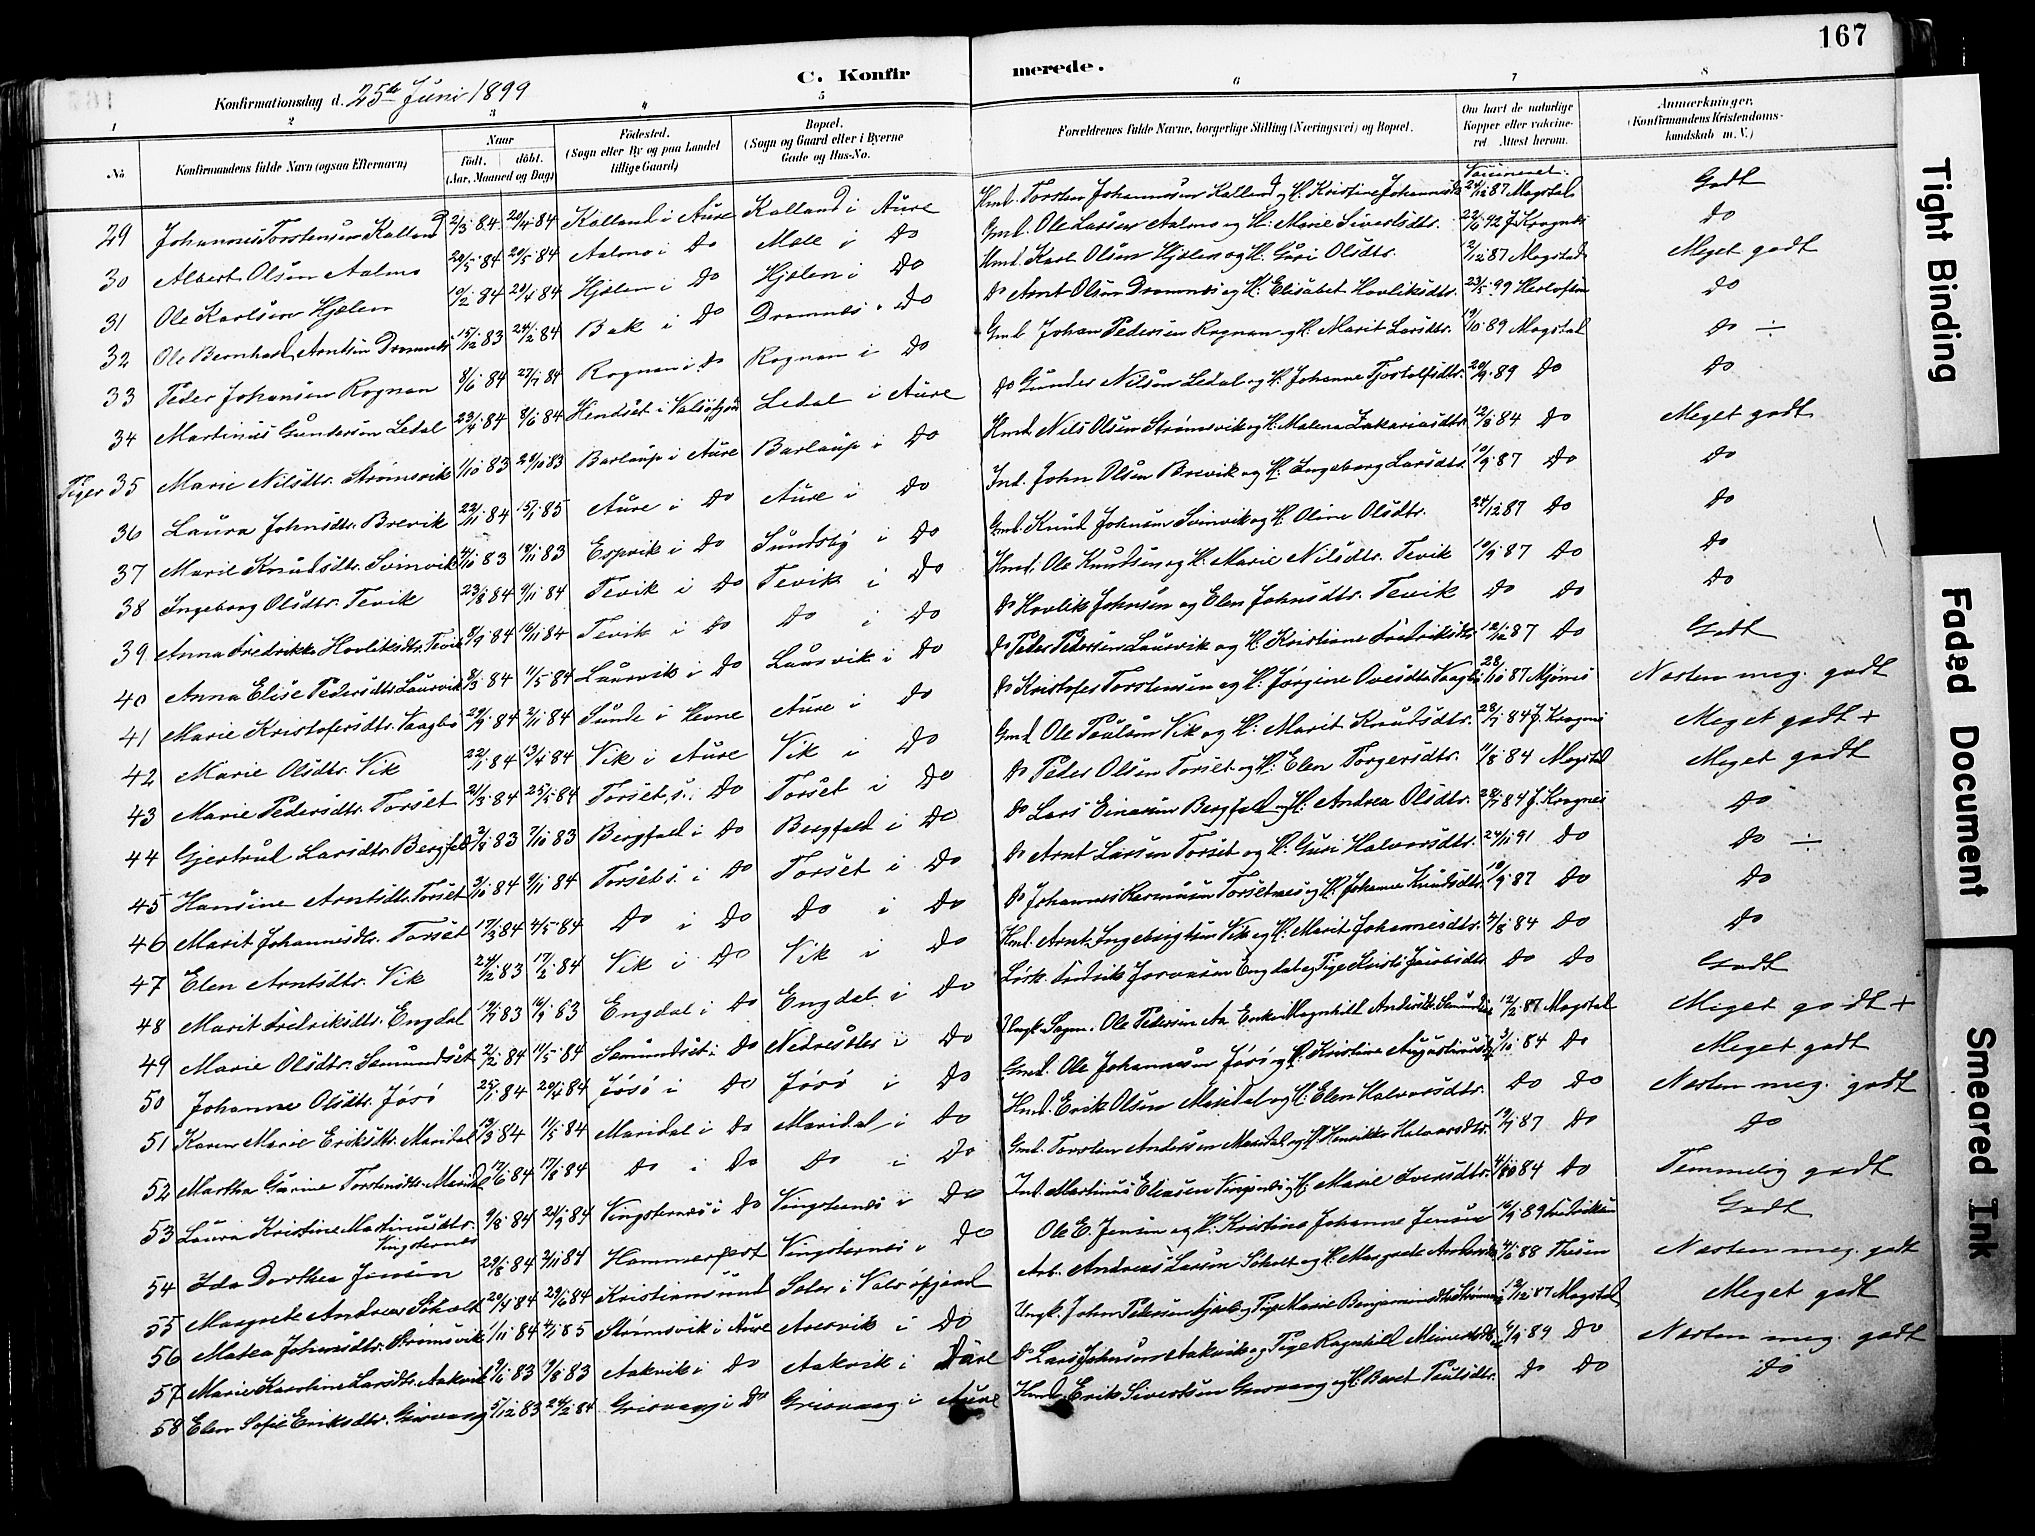 167
C. Konfirmerede.
Konfirmationsdag d. 25de Juni 1899
1 2 3 4 5 6 7 8
No Konfirmandens fulde Navn (ogsaa Efternavn) Naar født. døbt. (Aar, Maaned og Dag) Fødested. (Sogn eller By og paa Landet tillige Gaard) Bopæl. (Sogn og Gaard eller i Byerne Gade og Hus-No. Forældrenes fulde Navne, borgerlige Stilling (Næringsvei) og Bopæl. Om havt de naturlige Kopper eller vakcineret. Attest herom. Anmærkninger. (Konfirmandens Kristendomskundskab m. V.)
Vaccineret.
29 Johannes Torstensen Kalland 2/3 84 20/4 84 Kalland i Aure Kalland i Aure Hmd. Torsten Johannesen Kalland og H. Kristine Johannesdtr. 24/12 87 Mogstad Godt
30 Albert Olsen Aalmo 84 20/5 84 Aalmo i Do Mæle i Do Gmd. Ole Larsen Aalmo og H. Marie Sivertsdtr. J. Krognes Do
31 Ole Karlsen Hjælen 10/2 84 20/4 84 Hjælen i Do Hjælen i Do Hmd. Karl Olsen Hjelen og H. Guri Olsdtr. 2/12 87 Mogstad Meget godt
32 Ole Bernhard Arntsen Dromnes 15/12 83 24/2 84 Bak i Do Dromnes i Do Do Arnt Olsen Dromnes og H. Elisabet Hovliksdtr. 23/5 99 Herlofsen Do
33 Peder Johansen Rognan 8/6 84 27/7 84 Rognan i Do Rognan i Do Gmd. Johan Pedersen Rognan og H. Marit Larsdtr. 19/10 89 Mogstad Do ÷
34 Martinus Gundersen Ledal 23/4 84 8/6 84 Hendset i Valsøfjord Ledal i Aure Do Gunder Nilsen Ledal og H. Johanne Tjostolfsdtr. 20/9 89 Do Do
Piger 35 Marie Nilsdtr. Strømsvik 1/10 83 83 Barlaup i Aure Barlaup i Do Hmd. Nils Olsen Strømsvik og H. Malena Zakariasdtr. 12/8 84 Do Meget godt
36 Laura Johnsdtr. Brevik 22/11 84 15/1 85 Aure i Do Aure i Do Ind. John Olsen Brevik og H. Ingeborg Larsdtr. 10/9 87 Do Do
37 Marie Knudsdtr. Svinvik 4/10 83 18/11 83 Espvik i Do Sundsby i Do Gmd. Knud Johnsen Svinvik og H. Oline Olsdtr. 24/12 87 Do Do
38 Ingeborg Olsdtr. Tevik 23/8 84 9/11 84 Tevik i Do Tevik i Do Hmd. Ole Knudsen og H. Marie Nilsdtr. Tevik 10/9 87 Do Do
39 Anna Fredrikke Hovliksdtr. Tevik 8/9 84 16/11 84 Tevik i Do Do i Do Do Hovlik Johnsen og Elen Johnsdtr. Tevik Do Do Do
40 Anna Elise Pedersdtr. Laurvik 8/3 84 11/5 84 Laurvik i Do Laurvik i Do Do Peder Pedersen Laurvik og H. Kristiane Fredriksdtr. 12/12 87 Do Godt
41 Marie Kristofersdtr. Vaagbø 29/9 84 2/11 84 Sunde i Hevne Aure i Do Do Kristofer Torstensen og H. Jørgine Ovesdtr. Vaagbø 28/10 87 Mjønes Næsten meg. godt
42 Marie Olsdtr. Vik 22/1 84 13/4 84 Vik i Aure Vik i Do Gmd. Ole Paulsen Vik og H. Marit Knudsdtr. 28/7 84 J. Krognes Meget godt +
43 Marie Pedersdtr. Torset 21/3 84 25/5 84 Torset, s. i Do Torset i Do Do Peder Olsen Torset og H. Elen Torgersdtr. 11/8 84 Mogstad Meget godt
44 Gjertrud Larsdtr. Bergfald 83 7/10 83 Bergfald i Do Bergfald i Do Do Lars Einarsen Bergfald og H. Andrea Olsdtr. 28/7 84 J. Krognes Do
45 Hansine Arntsdtr. Torset 3/10 84 9/11 84 Torset s. i Do Torset i Do Do Arnt Larsen Torset og H. Guri Halvorsdtr. 24/11 91 Do Do ÷
46 Marit Johannesdtr. Torset 17/3 84 4/5 84 Do i Do Do i Do Do Johannes Rasmusen Torsetnes og H. Johanna Knudsdtr. 10/9 87 Do Do
47 Elen Arntsdtr. Vik 24/12 83 17/2 84 Vik i Do Vik i Do Hmd. Arnt Ingebrigtsen Vik og H. Marit Johannesdtr. 4/8 84 Do Do
48 Marit Fredriksdtr. Engdal 19/7 83 16/9 83 Engdal i Do Engdal i Do Løsk. Fredrik Engdal og Pige Jacobsdtr. Do Do Godt
49 Marie Olsdtr. Semundset 2/2 84 11/5 84 Semundset i Do i Do Ungk. Sagm. Ole Pedersen Aa Enke Magnhild Andersdtr. Semundset 12/2 87 Mogstad Meget godt +
50 Johanne Olsdtr. Jøsø 25/1 84 20/4 84 Jøsø i Do Jøsø i Do Gmd. Ole Johannesen Jøsø og H. Kristine Augustinusdtr. 3/10 84 Do Meget godt
51 Karen Marie Eriksdtr. Maridal 13/3 84 11/5 84 Maridal i Do Maridal i Do Hmd. Erik Olsen Maridal og H. Elen Halvorsdtr. Do Do Næsten meg. godt
52 Martha Gurine Torstensdtr. Maridal 17/6 84 17/8 84 Do i Do Do i Do Gmd. Torsten Andersen Maridal og H. Henrikke Halvorsdtr. 19/9 87 Do Do
53 Laura Kristine Martinusdtr. Vingsternes 9/8 84 21/9 84 Vingsternes i Do Vingsternes i Do Ind. Martinus Eliasen Vingsternes og H. Marie Iversdtr. 84 Do Temmelig godt
54 Ida Dorthea Jensen 29/8 84 2/11 84 Hammerfest Vingsternes i Do Ole E. Jensen og H. Kristina Johanne Jensen 16/9 89 Fredriksen Godt
55 Margrete Andreas Scholt 20/4 84 29/6 84 Kristiansund Soter i Valsøfjord Arb. Andreas Larsen Scholt og H. Margrete Andersdtr. 4/6 88 Thesen Næsten meg. godt
56 Matea Johnsdtr. Strømsvik 1/11 84 4/1 85 Strømsvik i Aure Aresvik i Do Ungk. John Petersen og Pige Marie Benjaminsdtr. Strømsvik 13/12 87 Mogstad Meget godt
57 Marie Karoline Larsdtr. Aakvik 9/6 83 9/8 83 Aakvik i Do Aakvik i Aure Do Lars Johnsen Aakvik og Pige Ragnhild 6/9 89 Do Næsten meg. godt
58 Elen Sofie Eriksdtr. Gresvaag 5/12 83 24/2 84 Gresvaag i Do Gresvaag i Aure Hmd. Erik Sivertsen Gresvaag og H. Beret Paulsdtr. Do Do Do
Tight Binding
Faded Document
Smeared Ink